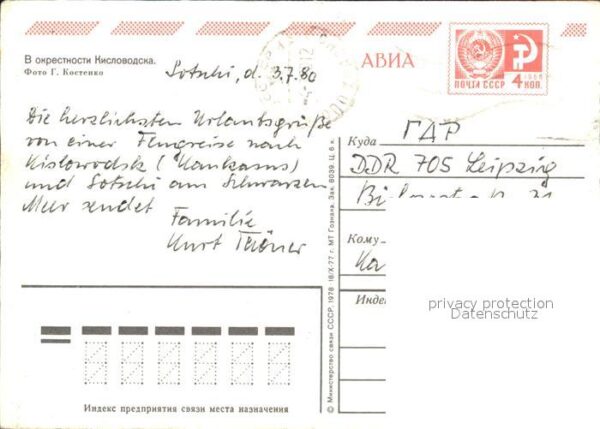 В окрестности Кисловодска.
Фото Г. Костенко
АВИА
ПОЧТА СССР
4 КОП.
1966
Sotschi, d. 3.7.80
Die herzlichsten Urlaubsgrüße
von einer Flugreise nach
Kislowodsk (Kaukasus)
und Sotschi am Schwarzen
Meer sendet
Familie
Kurt
Куда ГДР
DDR 705 Leipzig
Кому
Ka
Инде
privacy protection
Datenschutz
Индекс предприятия связи места назначения
© Министерство связи СССР. 1978 18/X-77 г. МТ Гознака. Зак. 6039. Ц. 6 к.